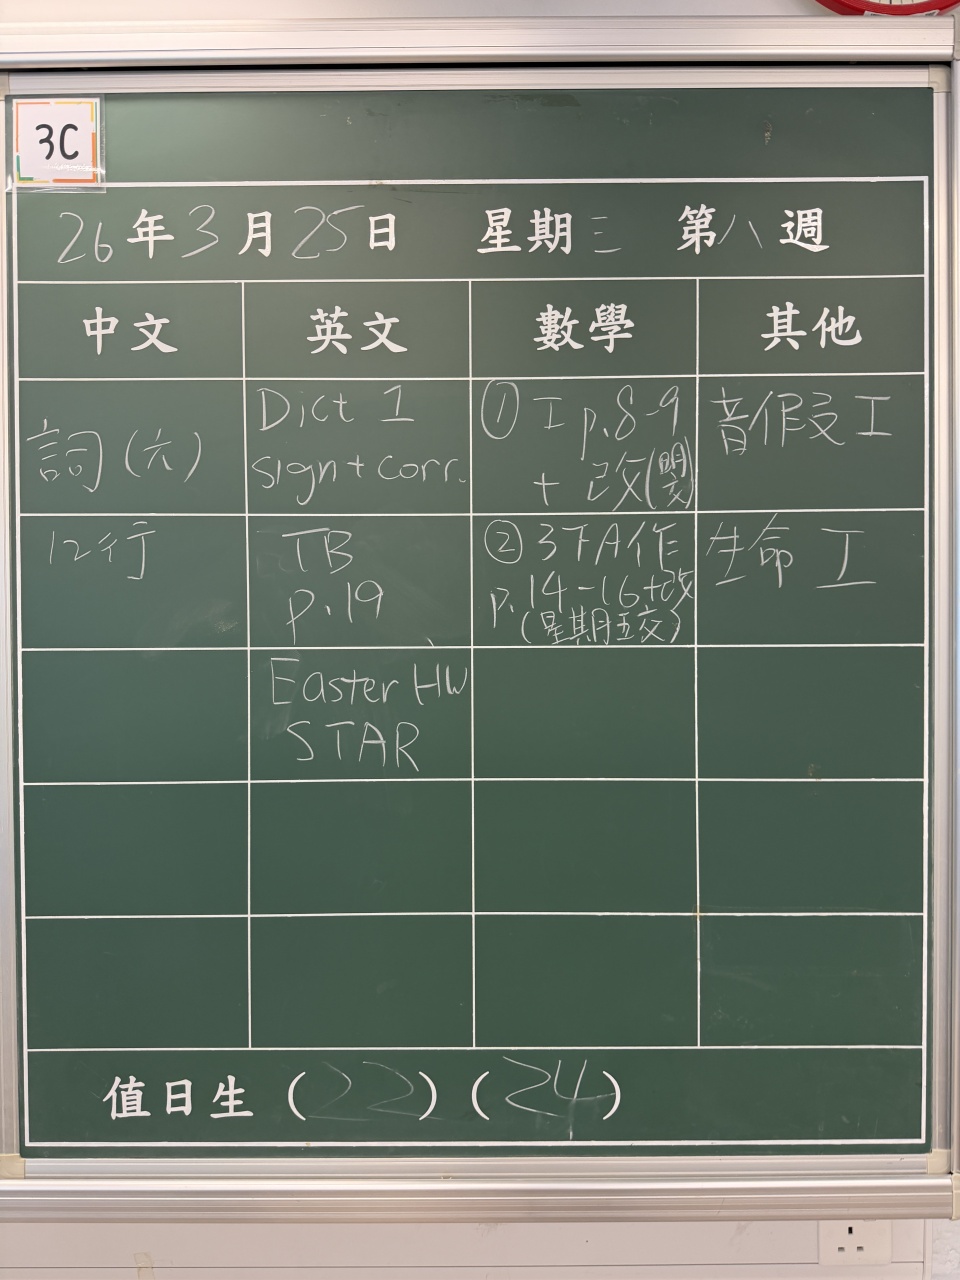 3C
26年3月25日 星期三 第八週
中文 英文 數學 其他
詞(六)
Dict 1
sign + corr.
① 工 p.8-9
+ 改(明交)
音假反工
12行
TB
p.19
② 3下A作
p.14-16+改
(星期五交)
生命 工
Easter HW
STAR
值日生 (22) (24)